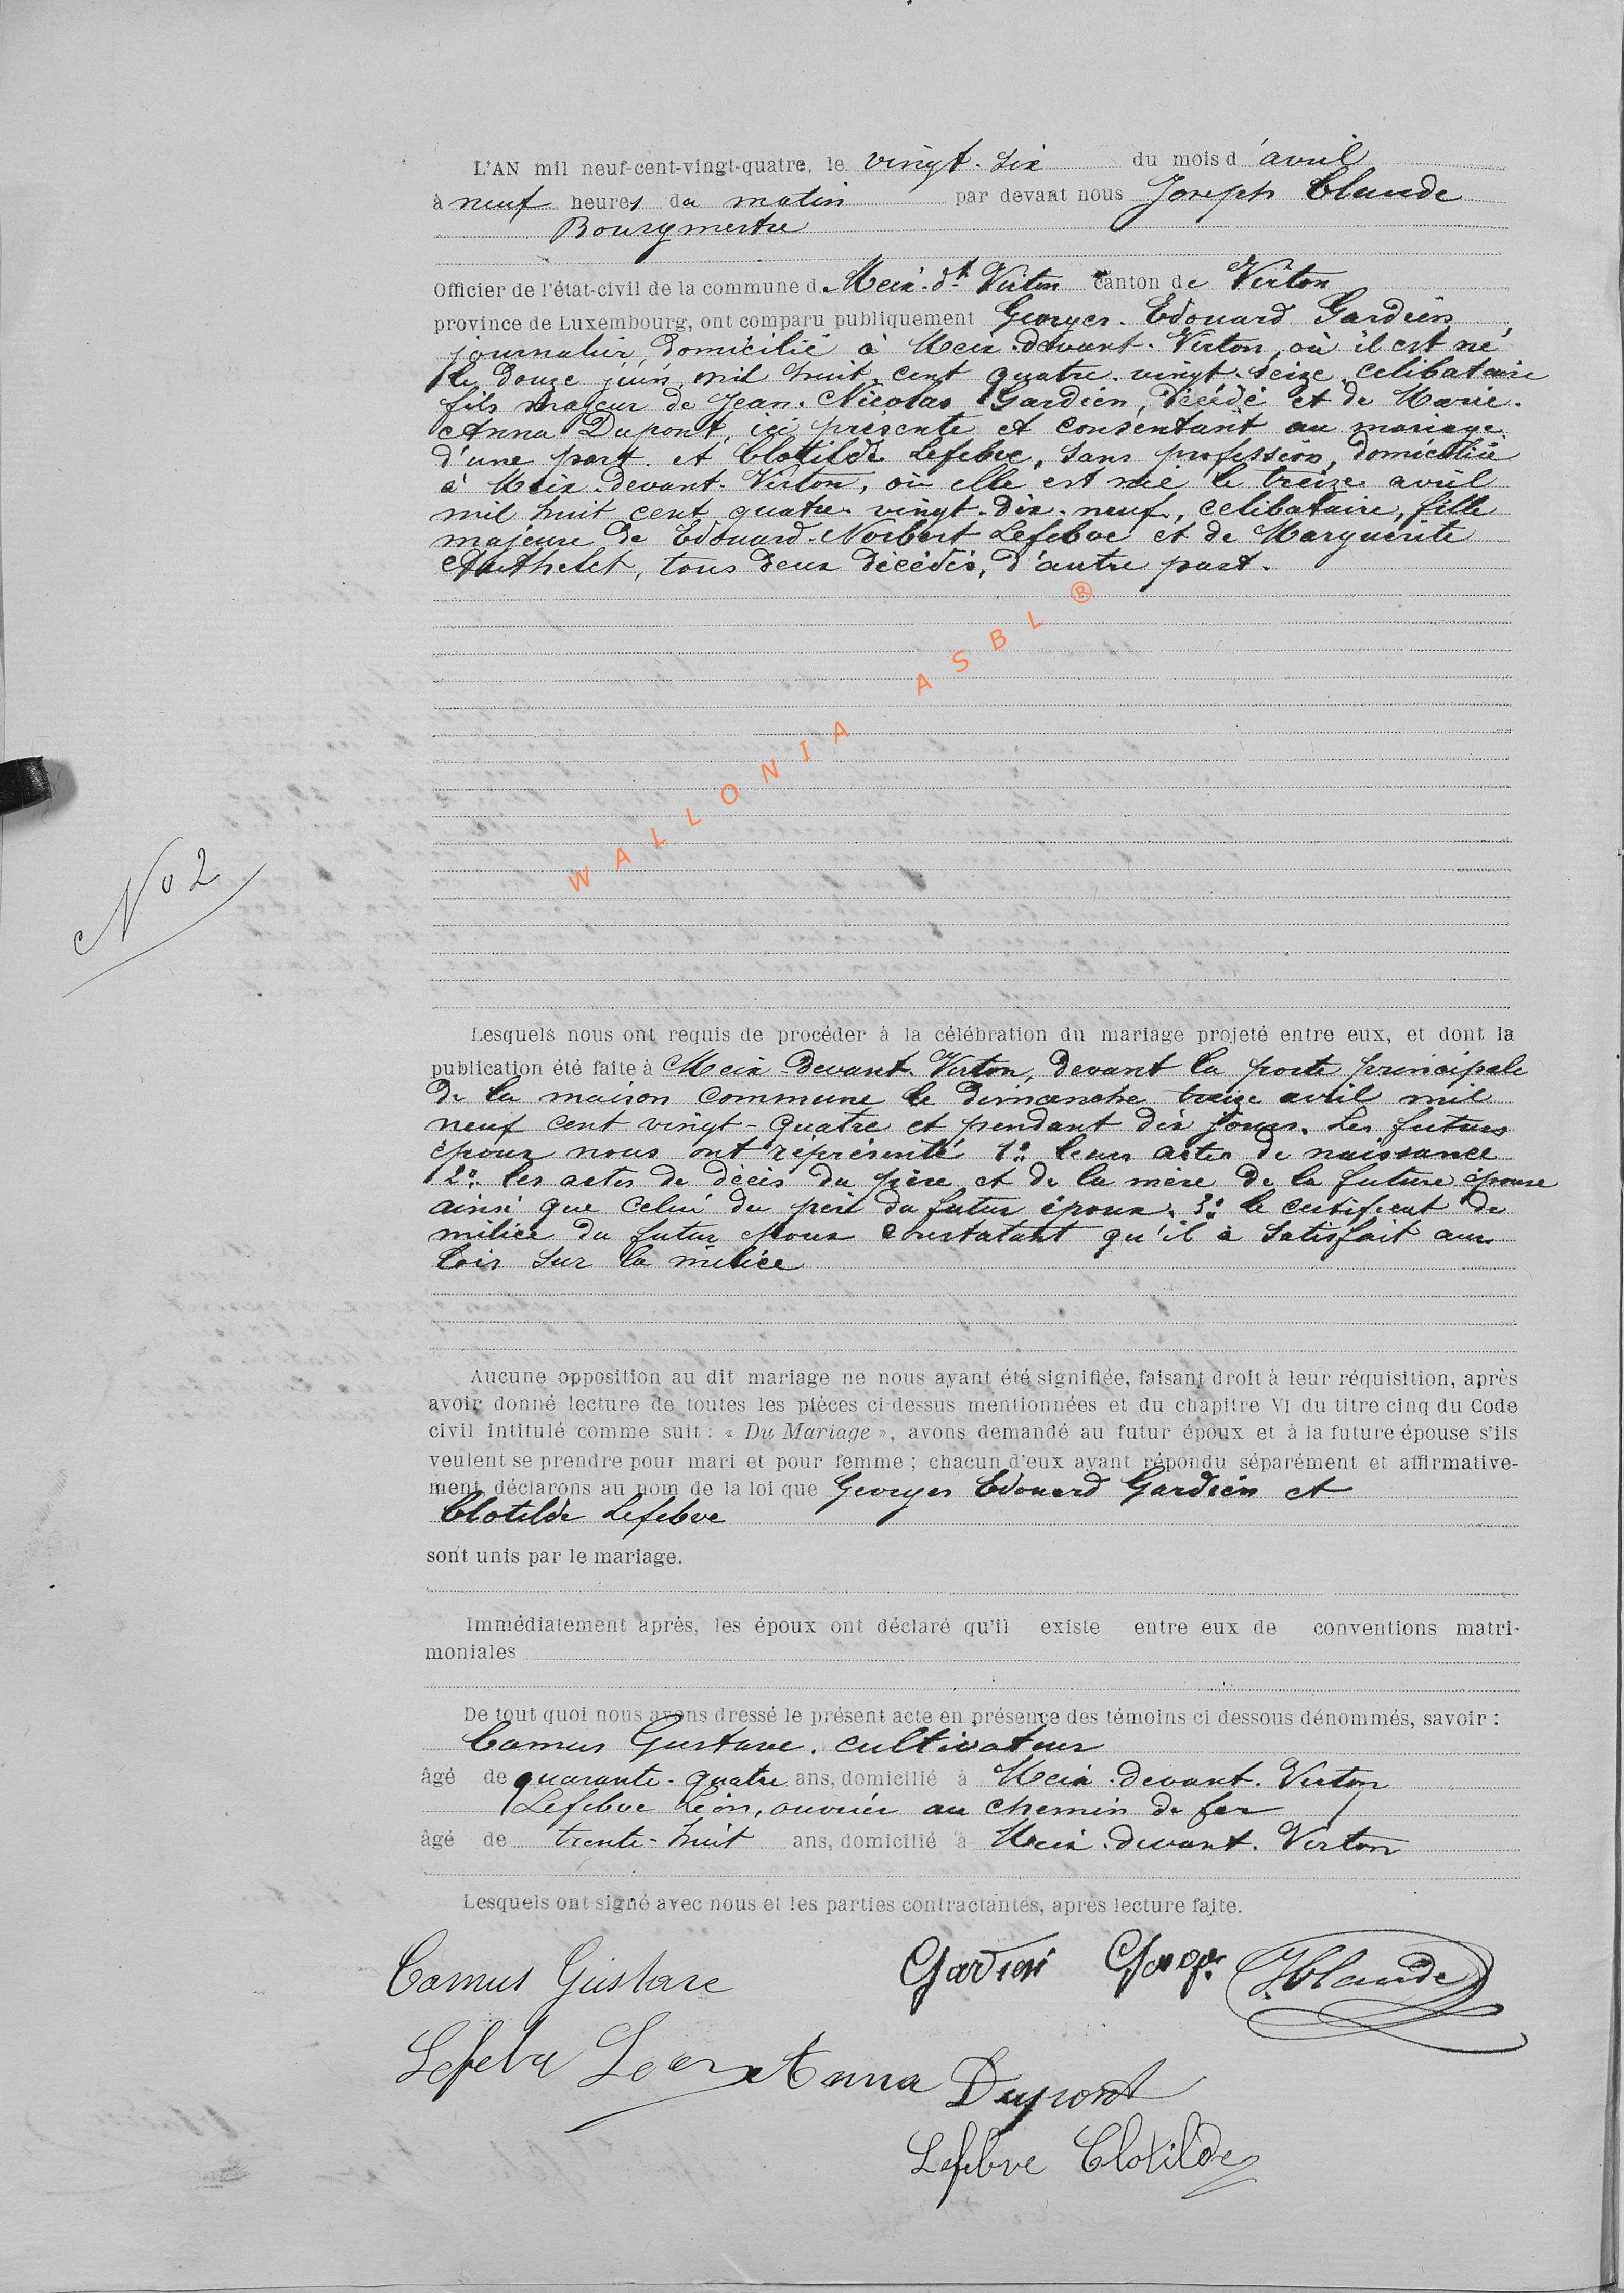 L'AN mil neuf-cent-vingt-quatre, le vingt-six du mois d'avril
à neuf heures du matin par devant nous Joseph Claude
Bourgmestre
Officier de l'état-civil de la commune de Meix-dt Virton canton de Virton
province de Luxembourg, ont comparu publiquement Georges-Edouard Gardien
journalier, domicilié à Meix-devant-Virton, où il est né
le douze juin mil huit cent quatre-vingt-seize, célibataire
fils majeur de Jean-Nicolas Gardien, décédé et de Marie-
Anna Dupont, ici présente et consentant au mariage
d'une part et Clotilde Lefebve, sans profession, domiciliée
à Meix-devant-Virton, où elle est née le treize avril
mil huit cent quatre-vingt-dix-neuf, célibataire, fille
majeure de Edouard-Norbert Lefebve et de Marguerite
tous deux décédés, d'autre part.
WALLONIA ASBL ®
No 2
Lesquels nous ont requis de procéder à la célébration du mariage projeté entre eux, et dont la
publication été faite à Meix-devant-Virton, devant la porte principale
de la maison commune le dimanche treize avril mil
neuf cent vingt-quatre et pendant dix jours. Les futurs
époux nous ont représenté 1° leurs actes de naissance
2° les actes de décès du père et de la mère de la future épouse
ainsi que celui du père du futur époux. 3° le certificat de
milice du futur époux constatant qu'il a satisfait aux
lois sur la milice
Aucune opposition au dit mariage ne nous ayant été signifiée, faisant droit à leur réquisition, après
avoir donné lecture de toutes les pièces ci-dessus mentionnées et du chapitre VI du titre cinq du Code
civil intitulé comme suit : « Du Mariage », avons demandé au futur époux et à la future épouse s'ils
veulent se prendre pour mari et pour femme ; chacun d'eux ayant répondu séparément et affirmative-
ment, déclarons au nom de la loi que Georges Edouard Gardien et
Clotilde Lefebve
sont unis par le mariage.
Immédiatement après, les époux ont déclaré qu'il existe entre eux de conventions matri-
moniales
De tout quoi nous avons dressé le présent acte en présence des témoins ci dessous dénommés, savoir :
Camus Gustave, cultivateur
âgé de quarante-quatre ans, domicilié à Meix-devant-Virton
Lefebve Léon, ouvrier au chemin de fer
âgé de trente-huit ans, domicilié à Meix-devant-Virton
Lesquels ont signé avec nous et les parties contractantes, après lecture faite.
Camus Gustave Gardien J. Claude
Lefebve Léon Anna Dupont
Lefebve Clotilde